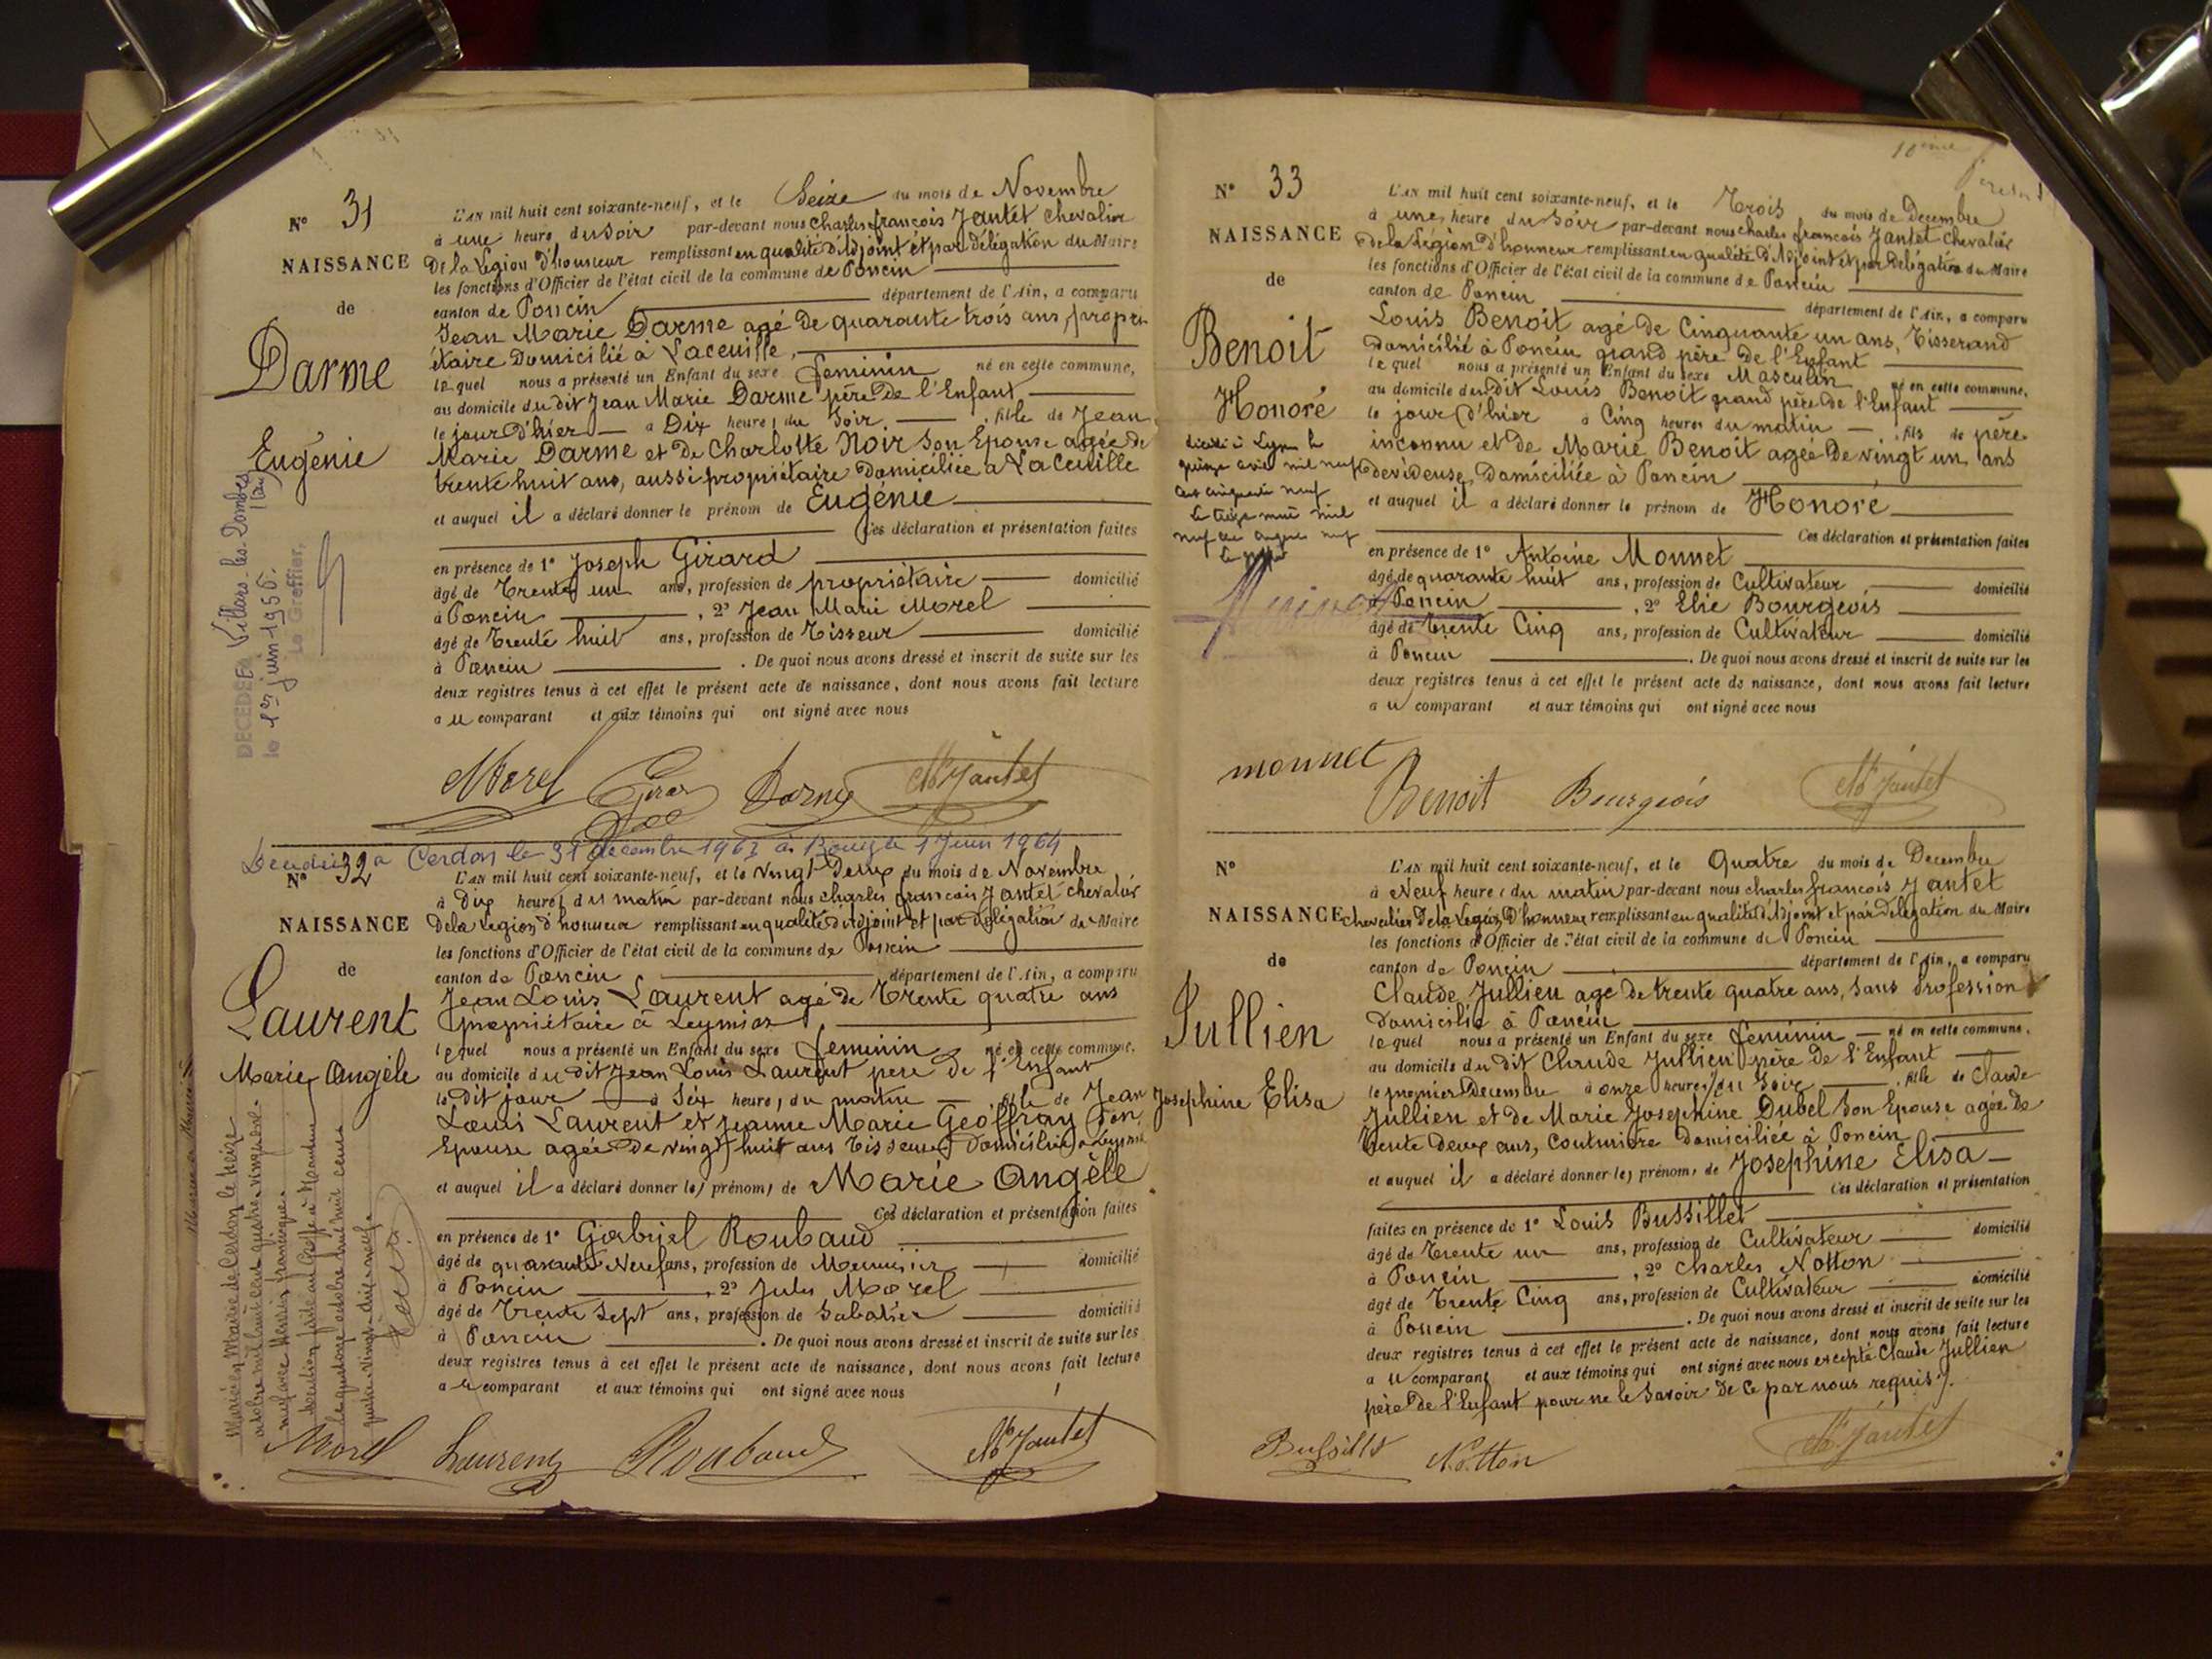 N° 31
NAISSANCE
de
Darme
Eugénie
DECEDEE Villars-les-Dombes
le 1er juin 1956.
Le Greffier,
L'AN mil huit cent soixante-neuf, et le Seize du mois de Novembre
à une heure du soir par-devant nous Charles françois Jantet chevalier
De la Légion d'honneur remplissant en qualité d'Adjoint et par délégation du Maire
les fonctions d'Officier de l'état civil de la commune de Poncin
canton de Poncin département de l'Ain, a comparu
Jean Marie Darme agé de quarante trois ans, propri
étaire domicilié à
lequel nous a présenté un Enfant du sexe feminin né en cette commune,
au domicile du dit Jean Marie Darme père de l'Enfant
le jour d'hier à Dix heures du Soir, fille de Jean
Marie Darme et de Charlotte Noir son Epouse agée de
trente huit ans, aussi propriétaire domiciliée a
et auquel il a déclaré donner le prénom de Eugénie
Ces déclaration et présentation faites
en présence de 1° Joseph Girard
âgé de Trente un ans, profession de propriétaire domicilié
à Poncin, 2° Jean Marie Morel
âgé de Trente huit ans, profession de Tisseur domicilié
à Poncin. De quoi nous avons dressé et inscrit de suite sur les
deux registres tenus à cet effet le présent acte de naissance, dont nous avons fait lecture
au comparant et aux témoins qui ont signé avec nous
Morel Girard Darme Jantet
Cerdon le 31 décembre 1963 1 Juin 1964
N° 32
NAISSANCE
de
Laurent
Marie Angèle
Mariée en Mairie de Cerdon le treize
octobre mil huit cent quatre vingt
L'AN mil huit cent soixante-neuf, et le vingt Deux du mois de Novembre
à dix heures du matin par-devant nous charles francois Jantet chevalier
De la Legion d'honneur remplissant en qualité d'adjoint et par délégation du Maire
les fonctions d'Officier de l'état civil de la commune de Poncin
canton de Poncin département de l'Ain, a comparu
Jean Louis Laurent agé de Trente quatre ans
propriétaire à Leymiat
lequel nous a présenté un Enfant du sexe feminin né en cette commune,
au domicile du dit Jean Louis Laurent pere de l'Enfant
le dit jour à Six heures du matin, fille de Jean
Louis Laurent et Jeanne Marie Geoffray son
Epouse agée de vingt huit ans Tisseuse Domiciliée a
et auquel il a déclaré donner les prénoms de Marie Angèle
Ces déclaration et présentation faites
en présence de 1° Gabriel Roubaud
âgé de quarante Neuf ans, profession de Menuisier domicilié
à Poncin, 2° Jules Morel
âgé de Trente Sept ans, profession de Sabotier domicilié
à Poncin. De quoi nous avons dressé et inscrit de suite sur les
deux registres tenus à cet effet le présent acte de naissance, dont nous avons fait lecture
au comparant et aux témoins qui ont signé avec nous
Morel Laurent Roubaud Jantet
10eme
N° 33
NAISSANCE
de
Benoit
Honoré
décédé à Lyon le
quinze avril mil neuf
cent cinquante neuf
Le treize mai mil
neuf cent cinquante neuf
Le greffier
L'AN mil huit cent soixante-neuf, et le Trois du mois de Decembre
à une heure du Soir par-devant nous charles francois Jantet Chevalier
de la Légion d'honneur remplissant en qualité d'Adjoint et par délégation du Maire
les fonctions d'Officier de l'état civil de la commune de Poncin
canton de Poncin département de l'Ain, a comparu
Louis Benoit agé de Cinquante un ans, Tisserand
domicilié à Poncin grand père de l'Enfant
lequel nous a présenté un Enfant du sexe Masculin né en cette commune,
au domicile du dit Louis Benoit grand père de l'Enfant
le jour d'hier à Cinq heures du matin, fils de père
inconnu et de Marie Benoit agée De vingt un ans
devideuse, Domiciliée à Poncin
et auquel il a déclaré donner le prénom de Honoré
Ces déclaration et présentation faites
en présence de 1° Antoine Monnet
âgé de quarante huit ans, profession de Cultivateur domicilié
à Poncin, 2° Elie Bourgeois
âgé de Trente Cinq ans, profession de Cultivateur domicilié
à Poncin. De quoi nous avons dressé et inscrit de suite sur les
deux registres tenus à cet effet le présent acte de naissance, dont nous avons fait lecture
au comparant et aux témoins qui ont signé avec nous
monnet Benoit Bourgeois Jantet
N°
NAISSANCE
de
Jullien
Josephine Elisa
L'AN mil huit cent soixante-neuf, et le Quatre du mois de Decembre
à Neuf heures du matin par-devant nous charles francois Jantet
chevalier De la Legion D'honneur remplissant en qualité d'Adjoint et par délégation du Maire
les fonctions d'Officier de l'état civil de la commune de Poncin
canton de Poncin département de l'Ain, a comparu
Claude Jullien age de trente quatre ans, sans profession
domicilié à Poncin
lequel nous a présenté un Enfant du sexe feminin né en cette commune,
au domicile du dit Claude Jullien père de l'Enfant
le premier Decembre à onze heures du Soir, fille de Claude
Jullien et de Marie Josephine Dubel son Epouse agée de
trente deux ans, couturière domiciliée à Poncin
et auquel il a déclaré donner les prénoms de Josephine Elisa
Ces déclaration et présentation
faites en présence de 1° Louis Bussillet
âgé de Trente un ans, profession de Cultivateur domicilié
à Poncin, 2° Charles Notton
âgé de Trente Cinq ans, profession de Cultivateur domicilié
à Poncin. De quoi nous avons dressé et inscrit de suite sur les
deux registres tenus à cet effet le présent acte de naissance, dont nous avons fait lecture
au comparant et aux témoins qui ont signé avec nous excepté Claude Jullien
père de l'Enfant pour ne le savoir de ce par nous requis
Bussillet Notton Jantet